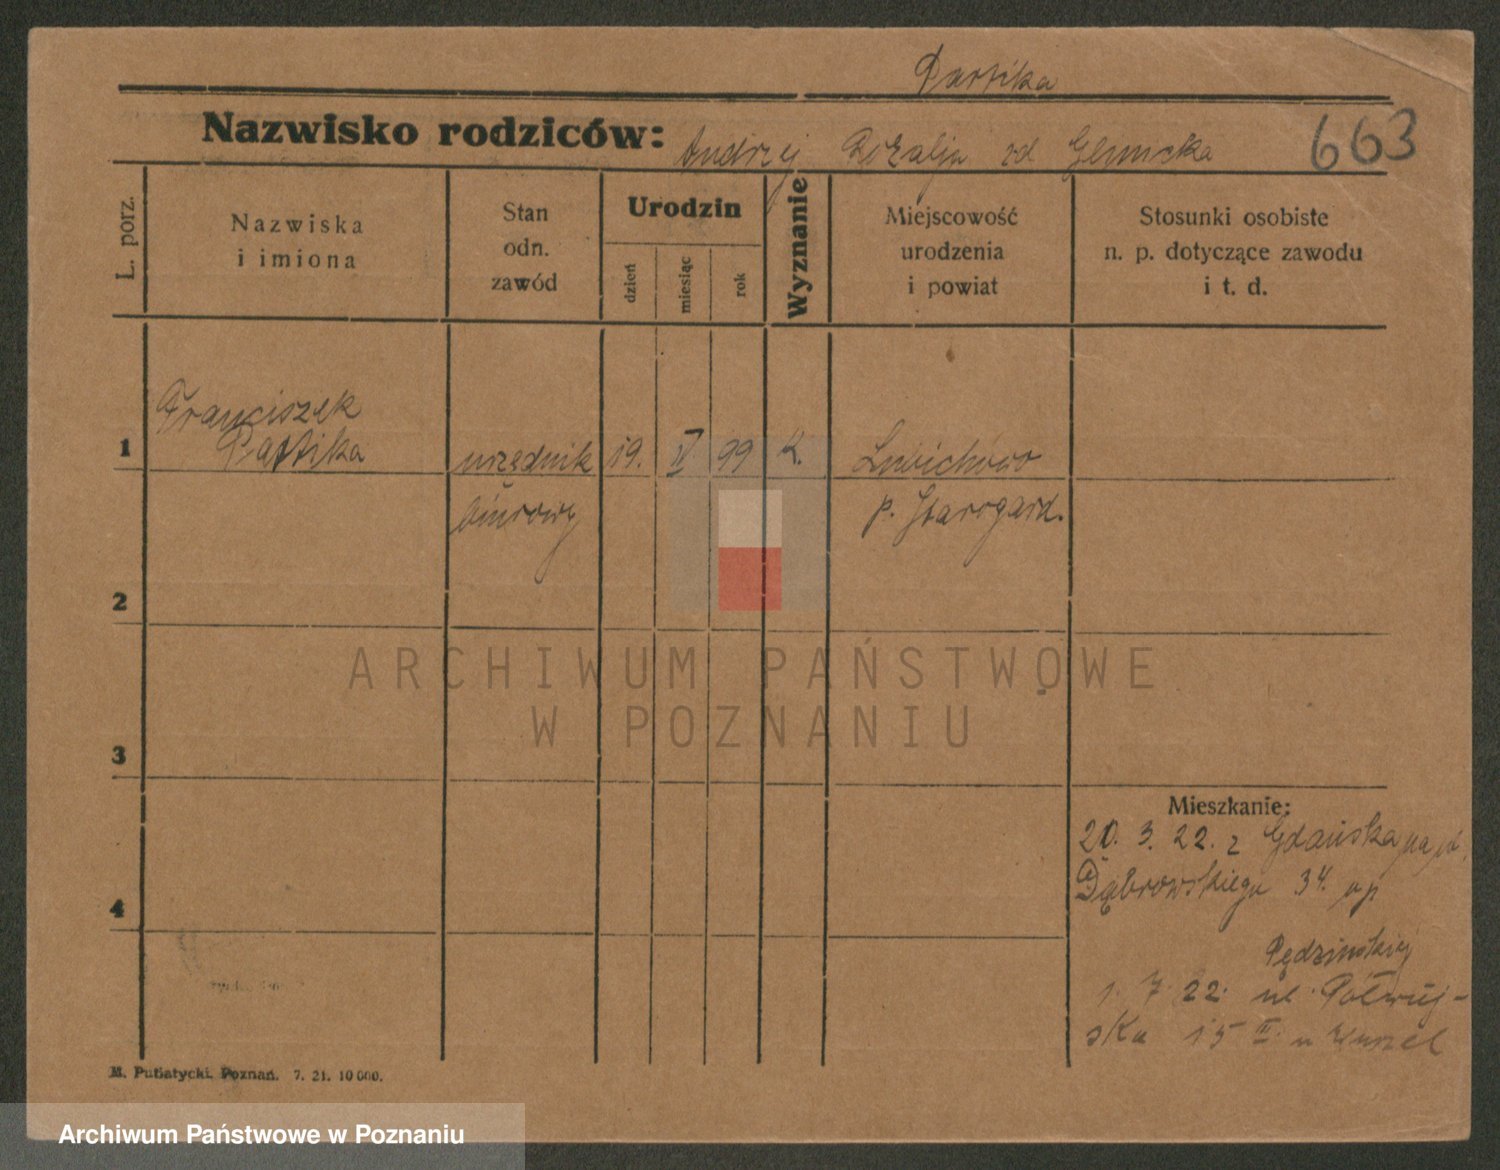 Partika
Nazwisko rodziców: Andrzej Rozalja zd Glinicka
663
L. porz.
Nazwiska
i imiona
Stan
odn.
zawód
Urodzin
dzień
miesiąc
rok
Wyznanie
Miejscowość
urodzenia
i powiat
Stosunki osobiste
n. p. dotyczące zawodu
i t. d.
1
Franciszek
Partika
urzędnik
biurowy
19.
IV
99
K.
Lubichowo
p. Starogard.
2
3
4
ARCHIWUM PAŃSTWOWE
W POZNANIU
Mieszkanie:
20. 3. 22. z Gdańska na
Dąbrowskiego 34.
Pędzińskiej
1. 7. 22. ul. Półwiej-
ska 15 III. u
M. Putiatycki, Poznań. 7. 21. 10 000.
Archiwum Państwowe w Poznaniu